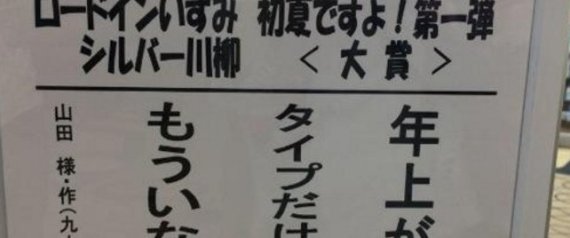 ロードインいずみ 初夏ですよ！第一弾
シルバー川柳 ＜大賞＞
年上が
タイプだけ
もういな
山田 様・作（九